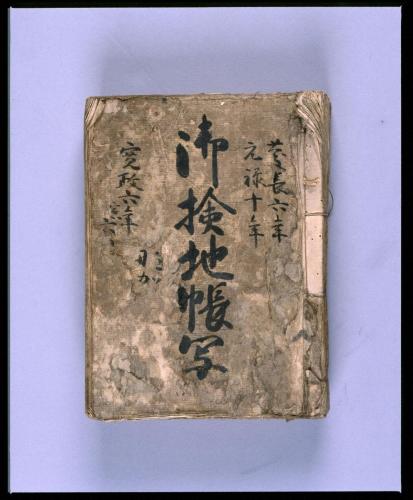 慶長六年
元禄十年
御検地帳写
寛政六年